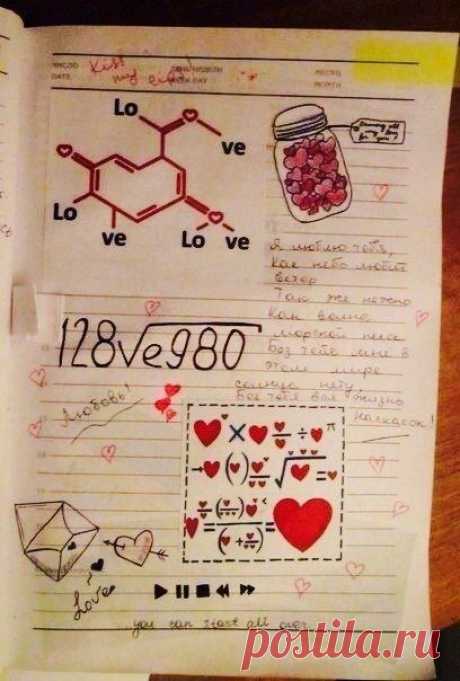 ЧИСЛО
DATE
ДЕНЬ НЕДЕЛИ
WEEK DAY
МЕСЯЦ
MONTH
Kiss
my
Lo
ve
Lo
ve
Lo ve
Я люблю тебя,
Как небо любит
ветер
Так же нежно
Как волна
морской песок
Без тебя мне в
этом мире
солнца нету,
Без тебя вся жизнь
128√e980
Любовь!
π
Love
you can start all over
postila.ru